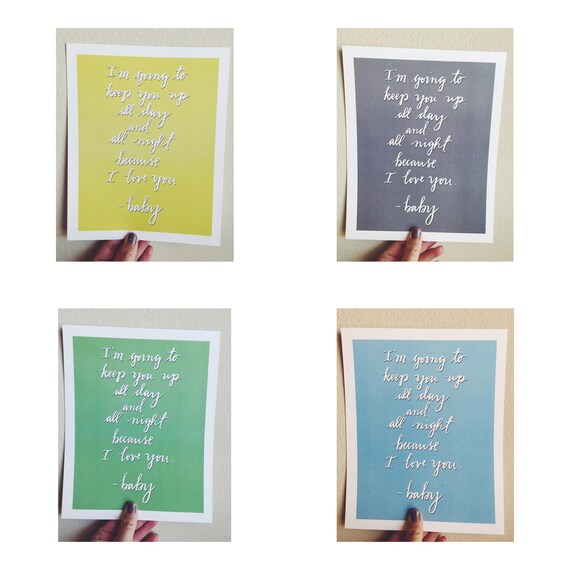 I'm going to
keep you up
all day
and
all night
because
I love you.
-baby
I'm going to
keep you up
all day
and
all night
because
I love you.
-baby
I'm going to
keep you up
all day
and
all night
because
I love you.
-baby
I'm going to
keep you up
all day
and
all night
because
I love you.
-baby